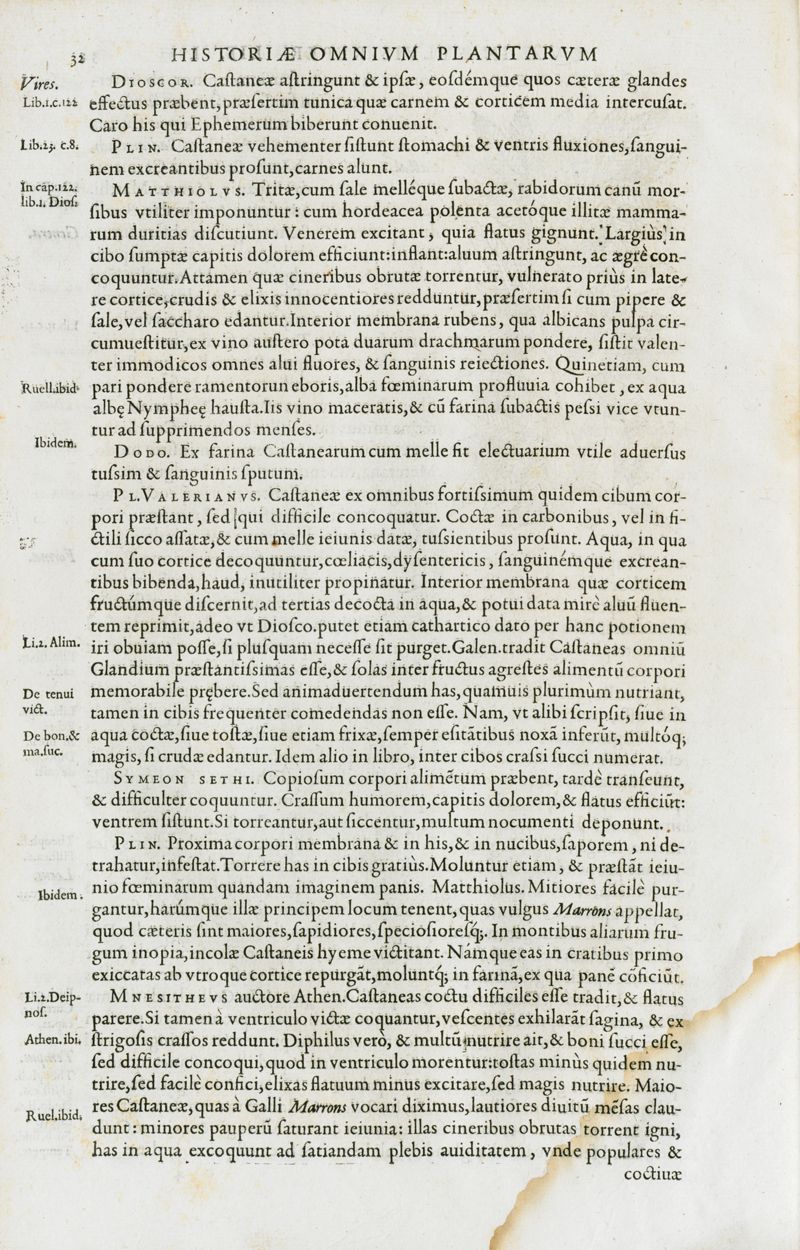 32 HISTORIÆ OMNIVM PLANTARVM
Vires. Dioscor. Caſtaneæ aſtringunt & ipſæ, eoſdémque quos cæteræ glandes
Lib.1.c.122 effectus præbent,præſertim tunica quæ carnem & corticem media intercuſat.
Caro his qui Ephemerum biberunt conuenit.
Lib.23. c.8. Plin. Caſtaneæ vehementer ſiſtunt ſtomachi & ventris fluxiones,ſangui-
nem excreantibus profunt,carnes alunt.
In cap.122. Matthiolvs. Tritæ,cum ſale melléque ſubactæ, rabidorum canũ mor-
lib.1. Dioſ. ſibus vtiliter imponuntur : cum hordeacea polenta acetóque illitæ mamma-
rum duritias diſcutiunt. Venerem excitant, quia flatus gignunt. Largiùs in
cibo ſumptæ capitis dolorem efficiunt:inflant:aluum aſtringunt, ac ægrè con-
coquuntur.Attamen quæ cineribus obrutæ torrentur, vulnerato priùs in late-
re cortice,crudis & elixis innocentiores redduntur,præſertim ſi cum pipere &
ſale,vel ſaccharo edantur.Interior membrana rubens, qua albicans pulpa cir-
cumueſtitur,ex vino auſtero pota duarum drachmarum pondere, ſiſtit valen-
ter immodicos omnes alui fluores, & ſanguinis reiectiones. Quinetiam, cum
Ruell.ibid. pari pondere ramentorun eboris,alba fœminarum profluuia cohibet , ex aqua
albę Nympheę hauſta.Iis vino maceratis,& cũ farina ſubactis peſsi vice vtun-
tur ad ſupprimendos menſes.
Ibidem. Dodo. Ex farina Caſtanearum cum melle fit electuarium vtile aduerſus
tuſsim & ſanguinis ſputum.
Pl.Valerianvs. Caſtaneæ ex omnibus fortiſsimum quidem cibum cor-
pori præſtant , ſed qui difficile concoquatur. Coctæ in carbonibus, vel in fi-
ctili ſicco aſſatæ,& cum melle ieiunis datæ, tuſsientibus proſunt. Aqua, in qua
cum ſuo cortice decoquuntur,cœliacis,dyſentericis , ſanguinémque excrean-
tibus bibenda,haud, inutiliter propinatur. Interior membrana quæ corticem
fructúmque diſcernit,ad tertias decocta in aqua,& potui data mirè aluũ fluen-
tem reprimit,adeo vt Dioſco.putet etiam cathartico dato per hanc potionem
Li.2. Alim. iri obuiam poſſe,ſi pluſquam neceſſe ſit purget.Galen.tradit Caſtaneas omniũ
Glandium præſtantiſsimas eſſe,& ſolas inter fructus agreſtes alimentũ corpori
De tenui memorabile prębere.Sed animaduertendum has,quamuis plurimùm nutriant,
vict. tamen in cibis frequenter comedendas non eſſe. Nam, vt alibi ſcripſit, ſiue in
De bon.& aqua coctæ,ſiue toſtæ,ſiue etiam frixæ,ſemper eſitātibus noxā inferūt, multóq;
ma.ſuc. magis, ſi crudæ edantur. Idem alio in libro, inter cibos craſsi ſucci numerat.
Symeon sethi. Copioſum corpori alimẽtum præbent, tardè tranſeunt,
& difficulter coquuntur. Craſſum humorem,capitis dolorem,& flatus efficiũt:
ventrem ſiſtunt.Si torreantur,aut ſiccentur,multum nocumenti deponunt.
Plin. Proxima corpori membrana & in his,& in nucibus,ſaporem , ni de-
trahatur,infeſtat.Torrere has in cibis gratiùs.Moluntur etiam , & præſtāt ieiu-
Ibidem. nio fœminarum quandam imaginem panis. Matthiolus. Mitiores facilè pur-
gantur,harúmque illæ principem locum tenent,quas vulgus Marrons appellat,
quod cæteris ſint maiores,ſapidiores,ſpecioſioreſq;. In montibus aliarum fru-
gum inopia,incolæ Caſtaneis hyeme victitant. Námque eas in cratibus primo
exiccatas ab vtroque cortice repurgāt,moluntq; in farinā,ex qua panē cōficiũt.
Li.2.Deip- Mnesithevs auctore Athen.Caſtaneas coctu difficiles eſſe tradit,& flatus
noſ. parere.Si tamen à ventriculo victæ coquantur,veſcentes exhilarāt ſagina, & ex
Athen. ibi. ſtrigoſis craſſos reddunt. Diphilus verò, & multũ nutrire ait,& boni ſucci eſſe,
ſed difficile concoqui,quod in ventriculo morentur:toſtas minùs quidem nu-
trire,ſed facilè confici,elixas flatuum minus excitare,ſed magis nutrire. Maio-
Ruel.ibid. res Caſtaneæ,quas à Galli Marrons vocari diximus,lautiores diuitũ mẽſas clau-
dunt : minores pauperũ ſaturant ieiunia: illas cineribus obrutas torrent igni,
has in aqua excoquunt ad ſatiandam plebis auiditatem , vnde populares &
coctiuæ